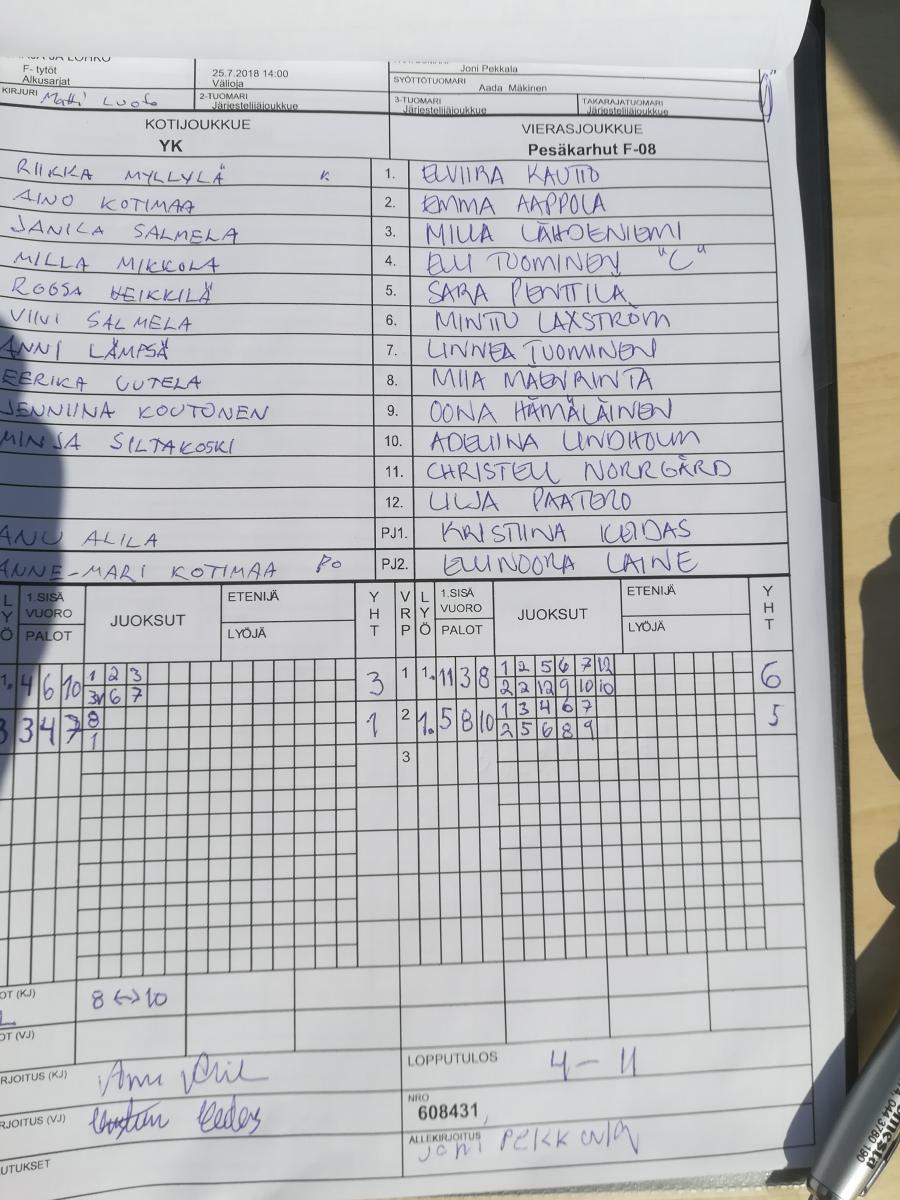 F- tytöt
Alkusarjat
25.7.2018 14:00
Välioja
Joni Pekkala
SYÖTTÖTUOMARI
Aada Mäkinen
KIRJURI Matti Luoto
2-TUOMARI
Järjestelijäjoukkue
3-TUOMARI
Järjestelijäjoukkue
TAKARAJATUOMARI
Järjestelijäjoukkue
KOTIJOUKKUE
YK
VIERASJOUKKUE
Pesäkarhut F-08
RIIKKA MYLLYLÄ 1. ELVIIRA KAUTTO
AINO KOTIMAA 2. EMMA AAPPOLA
JANILA SALMELA 3. MILLA LÄHDENIEMI
MILLA MIKKOLA 4. ELLI TUOMINEN "C"
ROOSA HEIKKILÄ 5. SARA PENTTILÄ
VIIVI SALMELA 6. MINTTU LAXSTRÖM
ANNI LÄMPSÄ 7. LINNEA TUOMINEN
EERIKA UUTELA 8. MIIA MÄENRINTA
JENNIINA KOUTONEN 9. OONA HÄMÄLÄINEN
MINJA SILTAKOSKI 10. ADELIINA LINDHOLM
11. CHRISTELL NORRGÅRD
12. LILJA PAATERO
ANU ALILA PJ1. KRISTIINA KEIDAS
ANNE-MARI KOTIMAA PO PJ2. ELLINOORA LAINE
LYÖ 1.SISÄ VUORO PALOT JUOKSUT ETENIJÄ LYÖJÄ YHT VRP LYÖ 1.SISÄ VUORO PALOT JUOKSUT ETENIJÄ LYÖJÄ YHT
1. 4 6 10 1 2 3 3 1 1. 11 3 8 1 2 5 6 7 12 6
6 7 2 2 12 9 10 10
3 3 4 7 8 1 2 1. 5 8 10 1 3 4 6 7 5
1 2 5 6 8 9
3
OT (KJ) 8 <-> 10
OT (VJ)
RJOITUS (KJ) Anu Alila
LOPPUTULOS 4 - 11
RJOITUS (VJ)
NRO
608431
ALLEKIRJOITUS
joni PEKKALA
UTUKSET